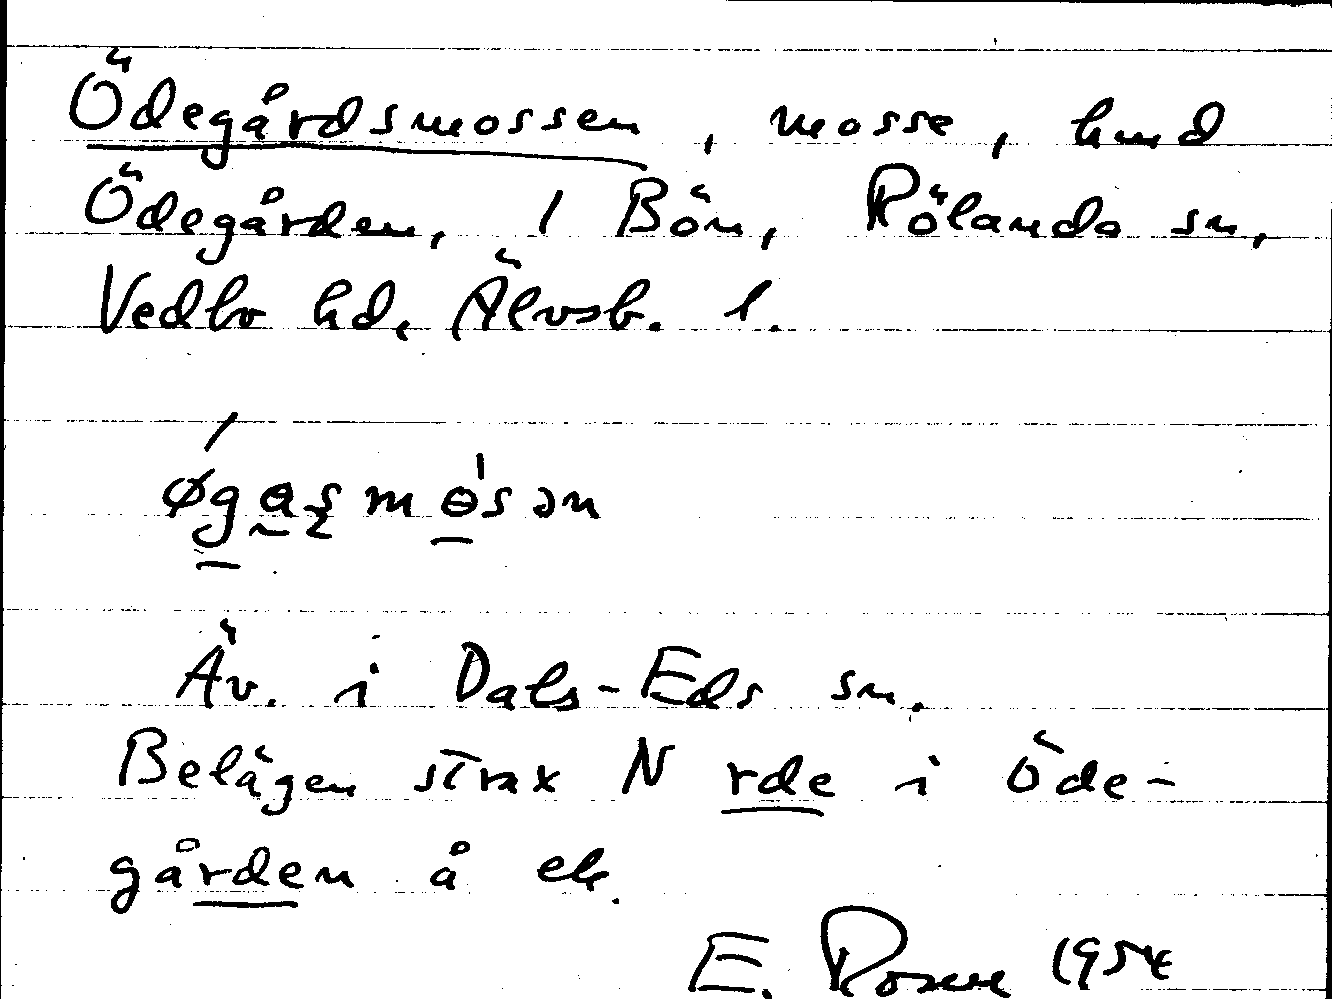 Ödegårdsmossen, mosse, hmd
Ödegården, 1 Bön, Rölanda sn,
Vedbo hd, Älvsb. l.
øgasmɵ'sən
Äv. i Dals-Eds sn.
Belägen strax N rde i Öde-
gården å ek.
E. Rosell 1954